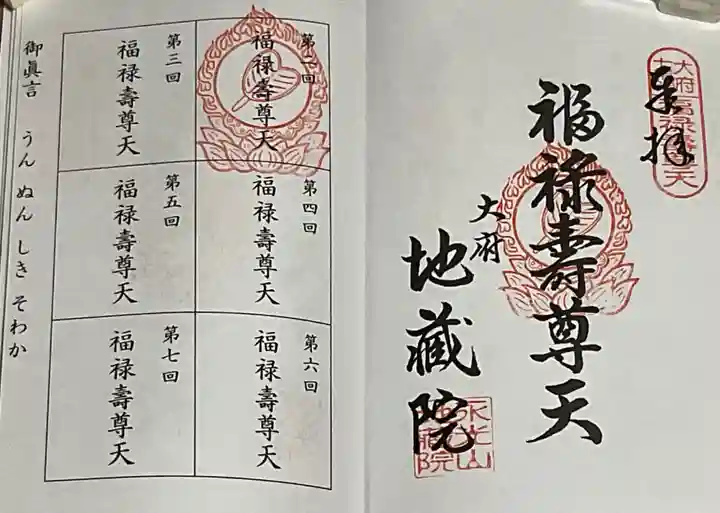 奉拝
福禄壽尊天
大府
地藏院
第二回
福禄壽尊天
第三回
福禄壽尊天
第四回
福禄壽尊天
第五回
福禄壽尊天
第六回
福禄壽尊天
第七回
福禄壽尊天
御眞言 うん ぬん しき そわか